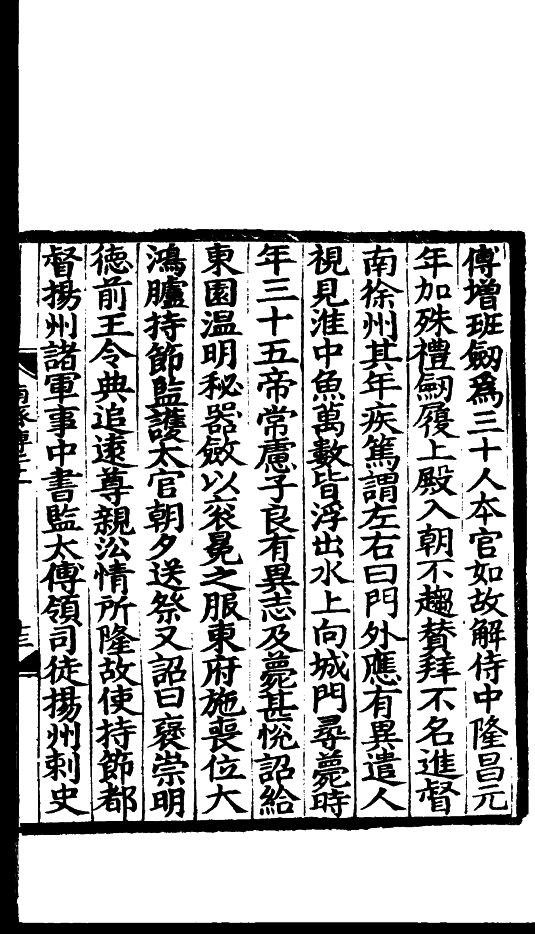 傅增班劒爲三十人本官如故解侍中隆昌元
年加殊禮劒履上殿入朝不趨賛拜不名進督
南徐州其年疾篤謂左右曰門外應有異遣人
視見淮中魚萬數皆浮出水上向城門尋薨時
年三十五帝常慮子良有異志及薨甚悅詔給
東園温明秘器斂以衮冕之服東府施喪位大
鴻臚持節監護太官朝夕送祭又詔曰襃崇明
德前王令典追遠尊親㳂情所隆故使持節都
督揚州諸軍事中書監太傅領司徒揚州刺史